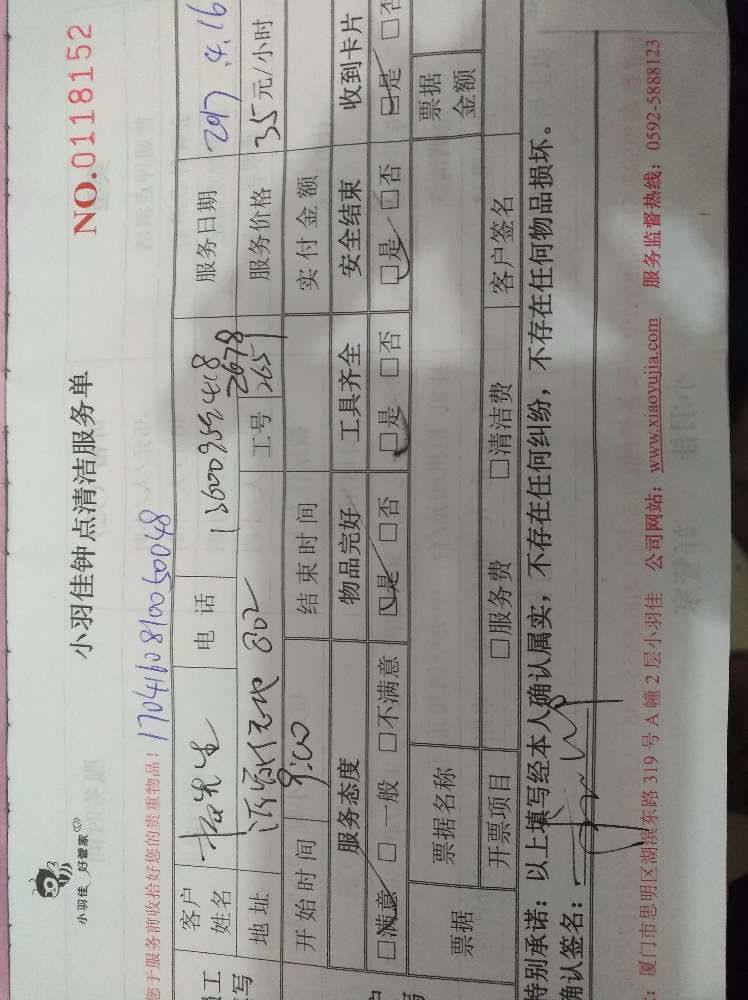 小羽佳 好管家
小羽佳钟点清洁服务单
NO.0118152
您于服务前收拾好您的贵重物品！
客户姓名 先生 电话 服务日期 2017.4.16
地址 802 工号 服务价格 35元/小时
开始时间 9:00 结束时间 实付金额
服务态度 物品完好 工具齐全 安全结束 收到卡片
□满意 □一般 □不满意 □是 □否 □是 □否 □是 □否 □是 □否
票据 票据名称 票据金额
开票项目 □服务费 □清洁费 客户签名
特别承诺：以上填写经本人确认属实，不存在任何纠纷，不存在任何物品损坏。
确认签名：
：厦门市思明区湖滨东路 319 号 A 幢 2 层小羽佳 公司网站：www.xiaoyujia.com 服务监督热线：0592-5888123